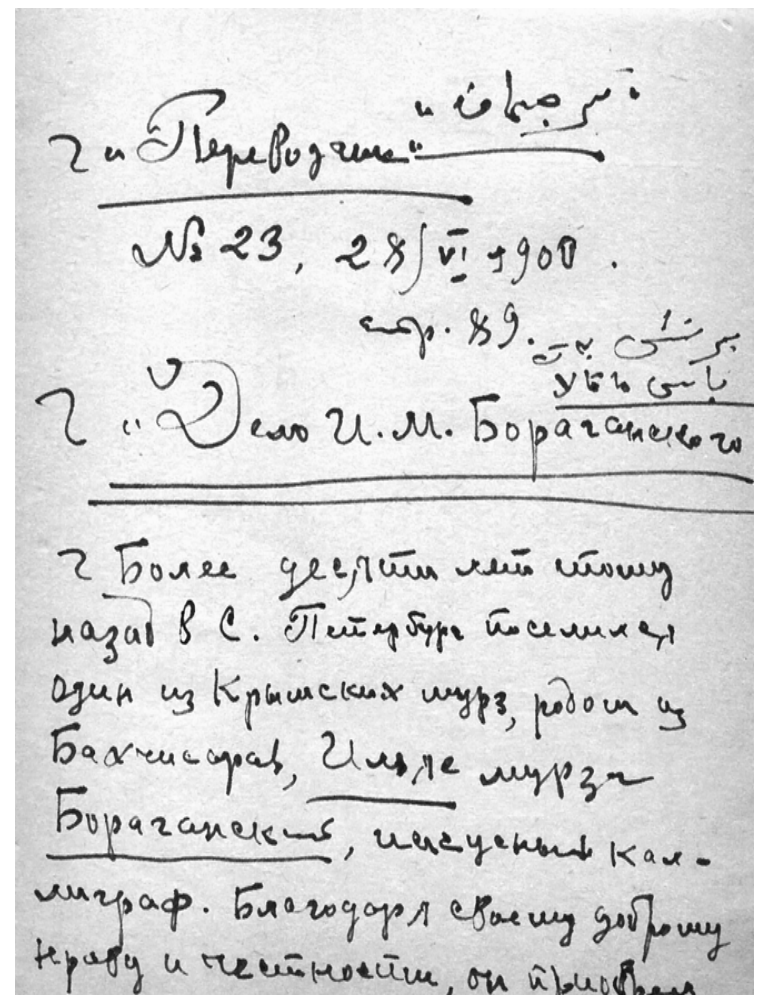 "ترجمان"
"Переводчик"
№ 23, 28/VI 1900.
стр. 89.
باش ماقالا
"Дело И. М. Бораганского
Более десяти лет тому
назад в С. Петербурге поселился
один из Крымских мурз, родом из
Бахчисарая, Ильяс мурза
Бораганский, искусный кал-
лиграф. Благодаря своему доброму
нраву и честности, он приобрел